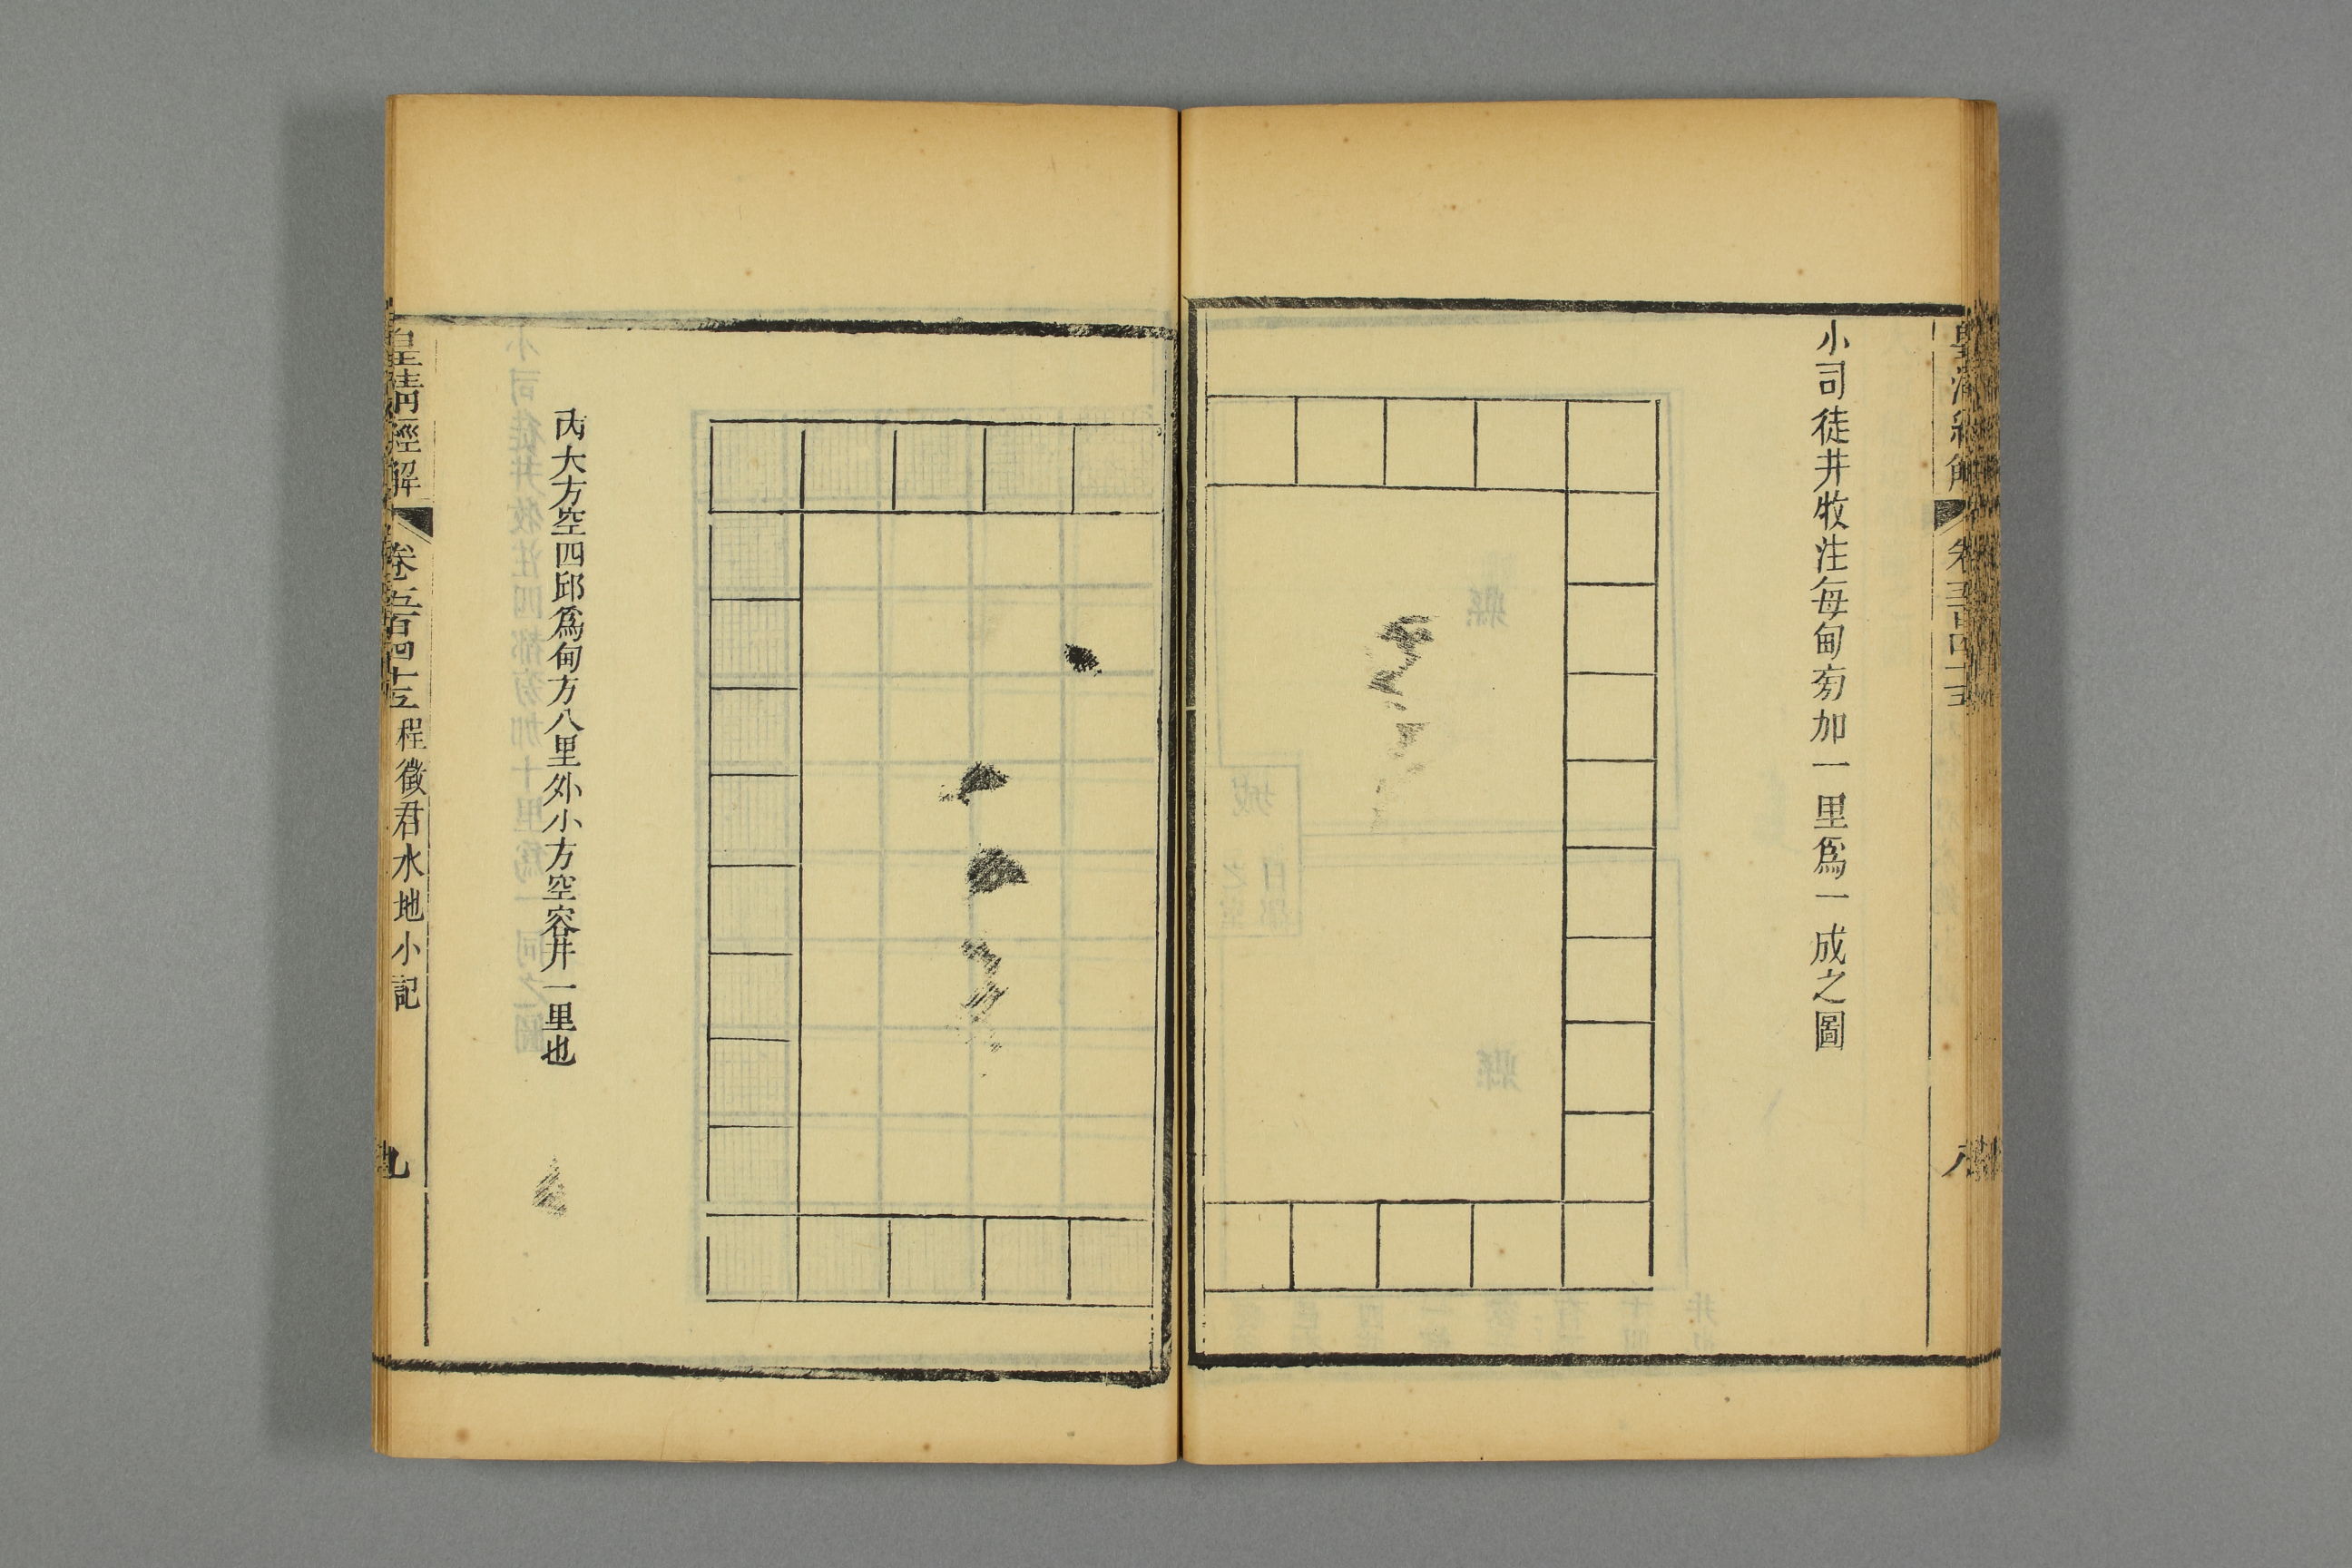 小司徒井牧注每甸㫄加一里爲一成之圖
內大方空四邱爲甸方八里外小方空容井一里也
皇清經解
卷五百四十三
程徵君水地小記
九